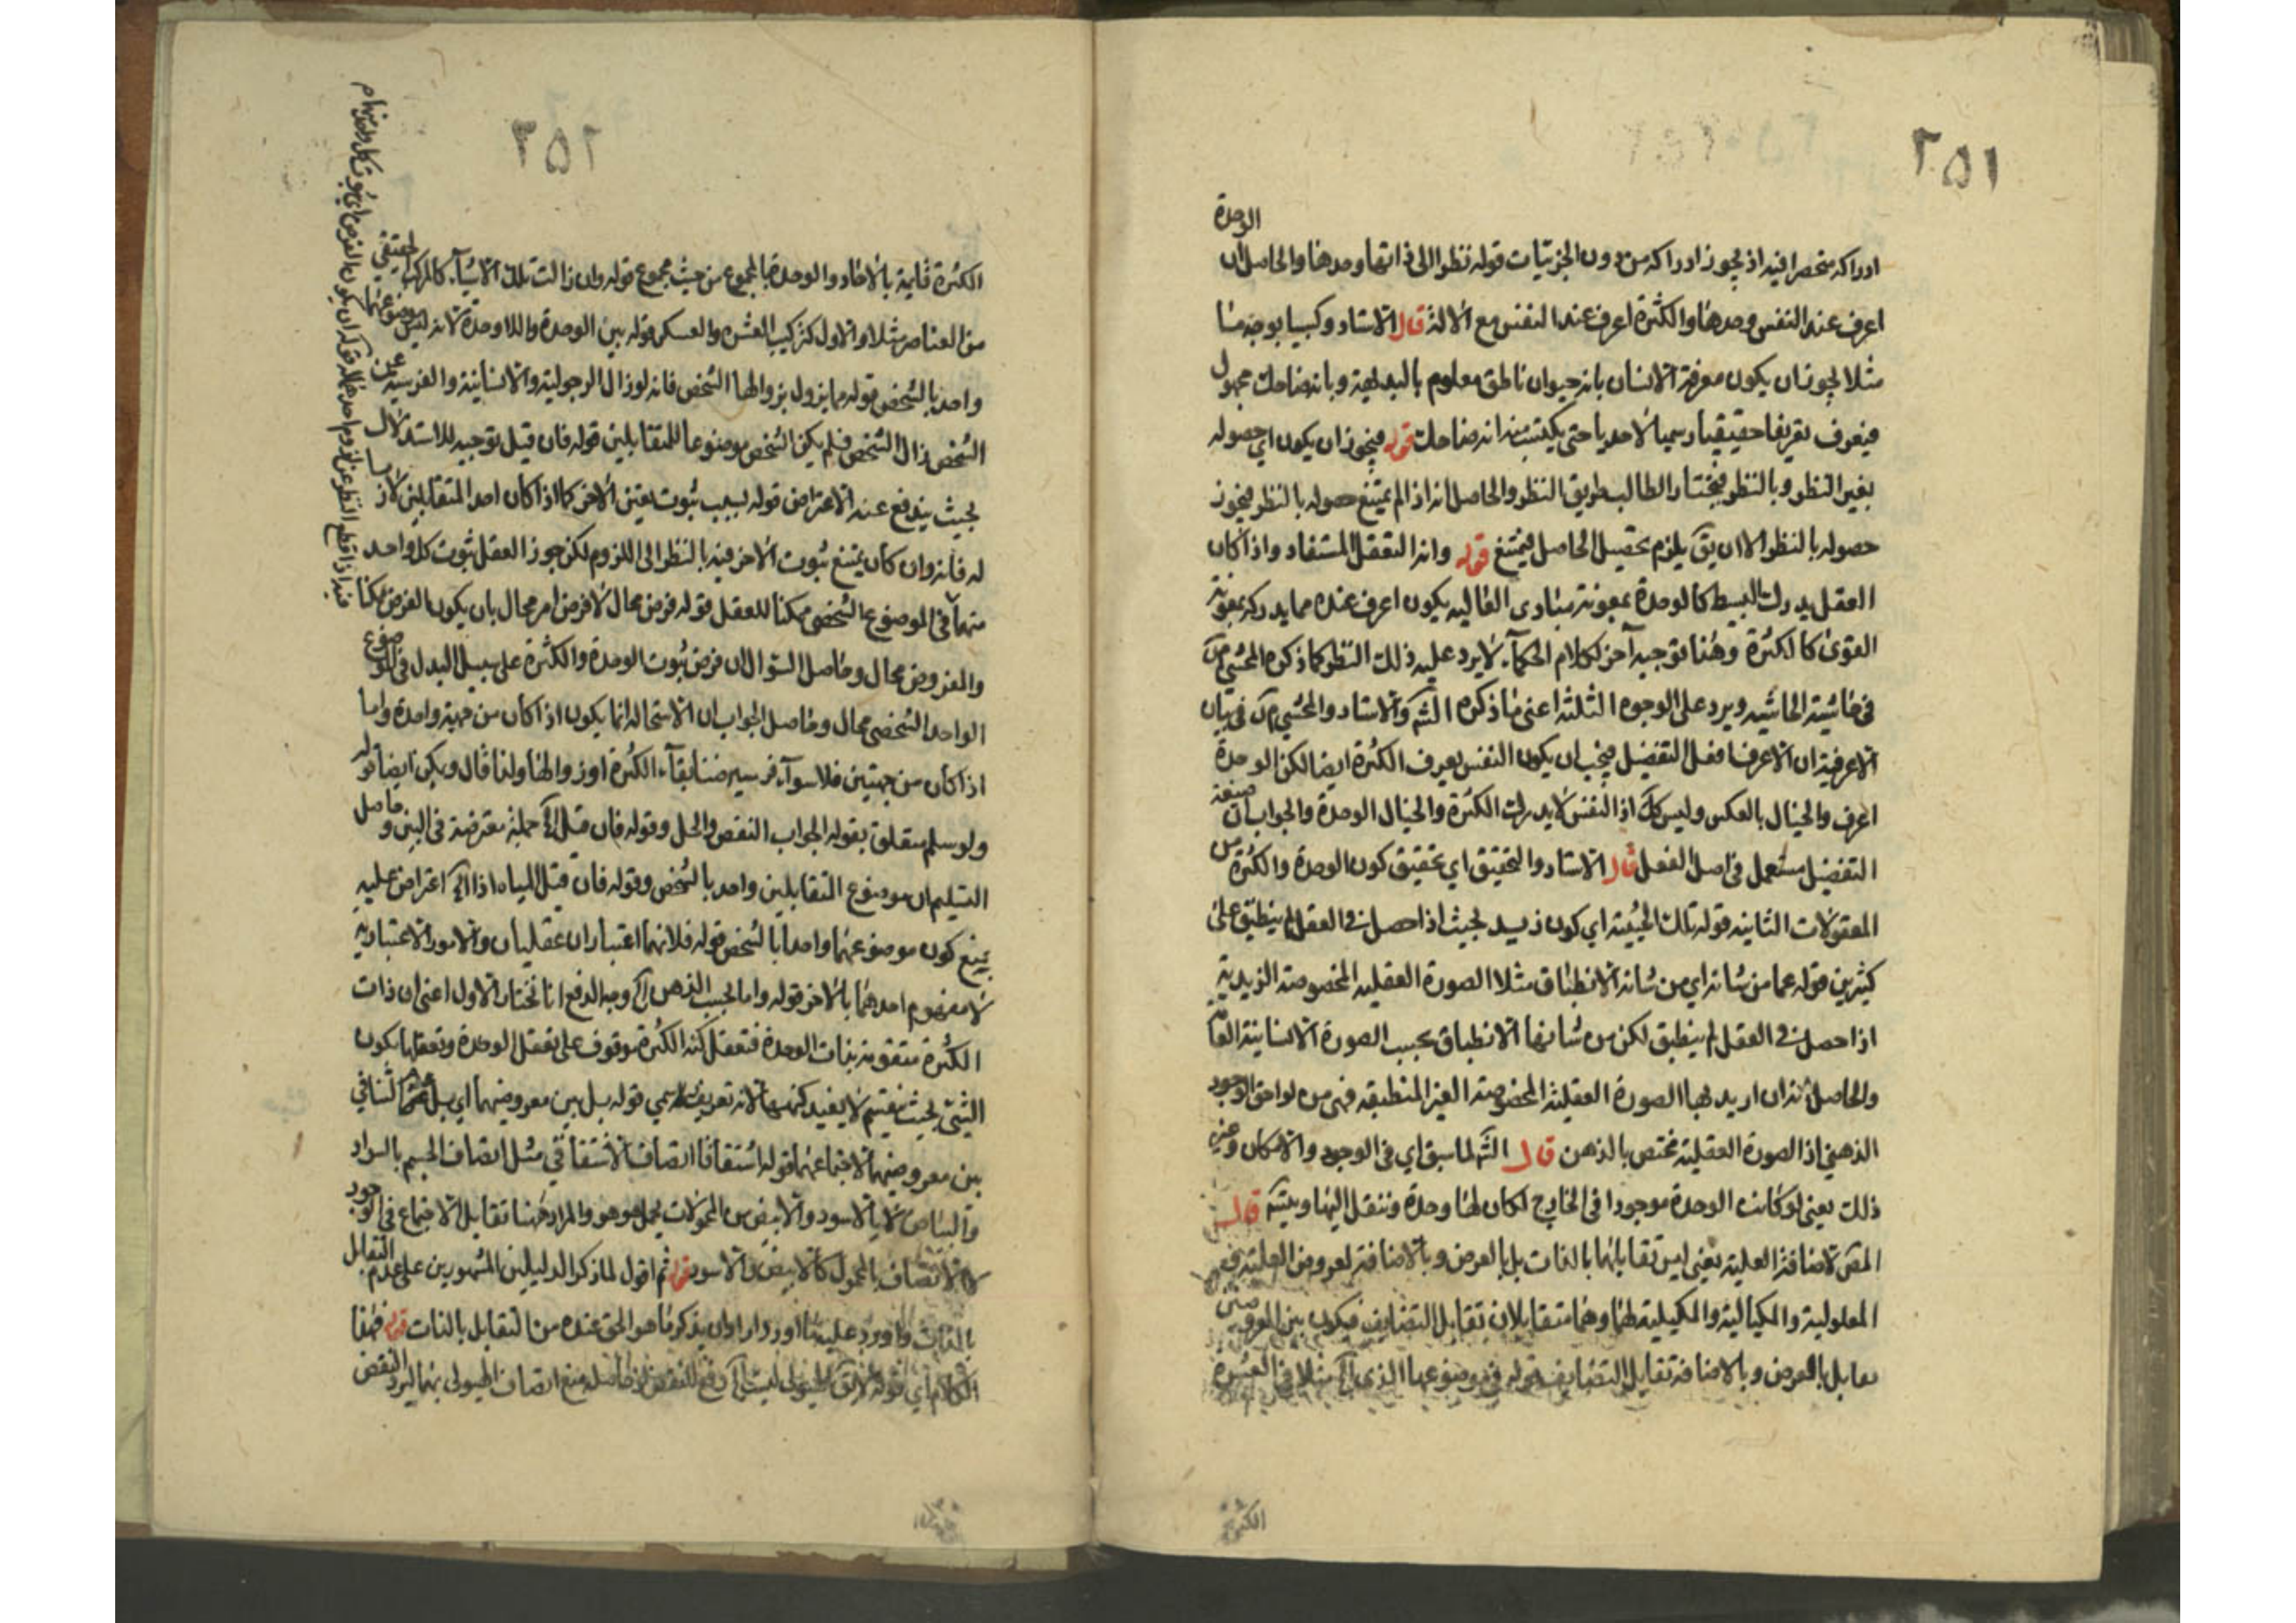 ٢٥١
الوحدة
ادراكه منحصرا فيه اذ يجوز ادراكه من دون الجزئيات قوله نظرا الى ذاتها وحدها والحاصل ان
اعرف عند النفس وحدها والكثرة اعرف عند النفس مع الالة قال الاستاد وكسبيا بوجه منا
مثلا يجوز ان يكون معرفة الانسان بانه حيوان ناطق معلوم بالبديهة وبانه ضاحك مجهول
فيعرف تعريفا حقيقيا رسميا لاحديا حتى يكتسب منه انه ضاحك قوله فيجوز ان يكون اي حصوله
بغير النظر وبالنظر فيختار الطالب طريق النظر والحاصل انه اذا لم يمتنع حصوله بالنظر فيجوز
حصوله بالنظر الا ان يق يلزم تحصيل الحاصل فيمتنع قوله وانه التعقل المستفاد واذا كان
العقل يدرك البسيط كالوحدة بمعونة مبادى العاليه يكون اعرف عنده مما يدركه بمعونة
القوى كالكثرة وهنا توجيه آخر لكلام الحكمآء لا يرد عليه ذلك النظر كما ذكره المحشي
فى حاشية الحاشيه ويرد على الوجوه الثلثة اعنى ما ذكره الشه والاستاد والمحشي فى بيان
الاعرفية ان الاعرف افعل التفضيل فيجب ان يكون النفس يعرف الكثرة ايضا لكن الوحدة
اعرف والخيال بالعكس وليس كك اذ النفس لا يدرك الكثرة والخيال الوحدة والجواب ان صيغة
التفضيل مستعمل فى اصل الفعل قال الاستاد والتحقيق اي تحقيق كون الوحدة والكثرة من
المعقولات الثانيه قوله تلك الحيثية اي كون زيد بحيث اذا حصل فى العقل لم ينطبق على
كثيرين قوله عما من شانه اي من شانه الانطباق مثلا الصورة العقليه المخصوصة الزيدية
اذا حصل فى العقل لم ينطبق لكن من شانها الانطباق بحسب الصورة الانسانية
والحاصل انه ان اريد بها الصورة العقلية المخصوصة الغير المنطبقه فهى من لواحق الوجود
الذهني اذ الصورة العقلية مختص بالذهن قال الشه لما سبق اي فى الوجود والامكان وغيره
ذلك يعنى لو كانت الوحدة موجودا فى الخارج لكان لها وحدة وننقل اليها ويتسم قال
المص لاضافة العلية يعنى ليس تقابلهما بالذات بل بالعرض وبالاضافة لعروض العلية
المعلولية والمكيالية والمكيلية لهما وهما متقابلان تقابل التضايف فيكون بين المعروضين
تقابل بالعرض وبالاضافة تقابل التضايف قوله فى موضوعها الذي الخ مثلا فى العشرة
الكثرة
٢٥٢
الكثرة قايمة بالاحاد والوحدة بالمجموع من حيث مجموع قوله وان زالت تلك الاشيآء كالمركب الحقيقي
من العناصر مثلا والاول كتركيب العشرة والعسكر قوله بين الوحدة واللاوحدة لانه ليس موضوعهما
واحد بالشخص قوله مما يزول بزوالها الشخص فانه لو زال الرجولية والانسانية والفرسية عن
الشخص زال الشخص فلم يكن الشخص موضوعا للمتقابلين قوله فان قيل توجيه للاستدلال
بحيث يندفع عنه الاعتراض قوله بسبب ثبوت يقين الاخر كما اذا كان احد المتقابلين لازما
له فانه وان كان يمتنع ثبوت الاخر فيه بالنظر الى اللزوم لكن جوز العقل ثبوت كل واحد
منهما فى الموضوع الشخصى ممكنا للعقل قوله فرض محال لا فرض امر محال بان يكون الفرض ممكنا
والمفروض محال وحاصل السؤال ان فرض ثبوت الوحدة والكثرة على سبيل البدل فى الموضوع
الواحد الشخصى محال وحاصل الجواب ان الاستحالة انما يكون اذا كان من جهة واحدة واما
اذا كان من جهتين فلا سوآء بقآء الكثرة او زوالها ولذا قال ويكن ايضا قوله
ولو سلم متعلق بقوله الجواب النقض والحل وقوله فان قيل الخ جملة معترضة فى البين وحاصل
التسليم ان موضوع المتقابلين واحد بالشخص وقوله فان قيل المياه اذا الخ اعتراض عليه
بمنع كون موضوعهما واحدا بالشخص قوله فلانهما اعتباران عقليان والامور الاعتبارية
لا معروض احدهما بالاخر قوله واما بحسب الذهن الخ وجه الدفع انا نختار الاول اعنى ان ذات
الكثرة متقومة بذات الوحدة فتعقل كنه الكثرة موقوف على تعقل الوحدة وتعقلها بكون
الشئ بحيث ينقسم لا يفيد كنهها لانه تعريف رسمي قوله بل بين معروضهما اي بل التنافي
بين معروضيهما لاجتماعهما قوله اشتقاقا اتصاف الاشتقاقي مثل اتصاف الجسم بالسواد
والبياض لا بالاسود والابيض من المحمولات بحمل هو هو والمراد هنا تقابل الاجتماع فى الوجود
لا الاتصاف بالمحمول كالابيض والاسود قوله ثم اقول لما ذكر الدليلين المشهورين على عدم التقابل
بالذات واورد عليه ما اورد اراد ان يذكر ما هو الحق عنده من التقابل بالذات قوله فهذا
الكلام اي قوله الهيولى ليست الخ دفع للنقض حاصله منع اتصاف الهيولى بهما ليرد النقض